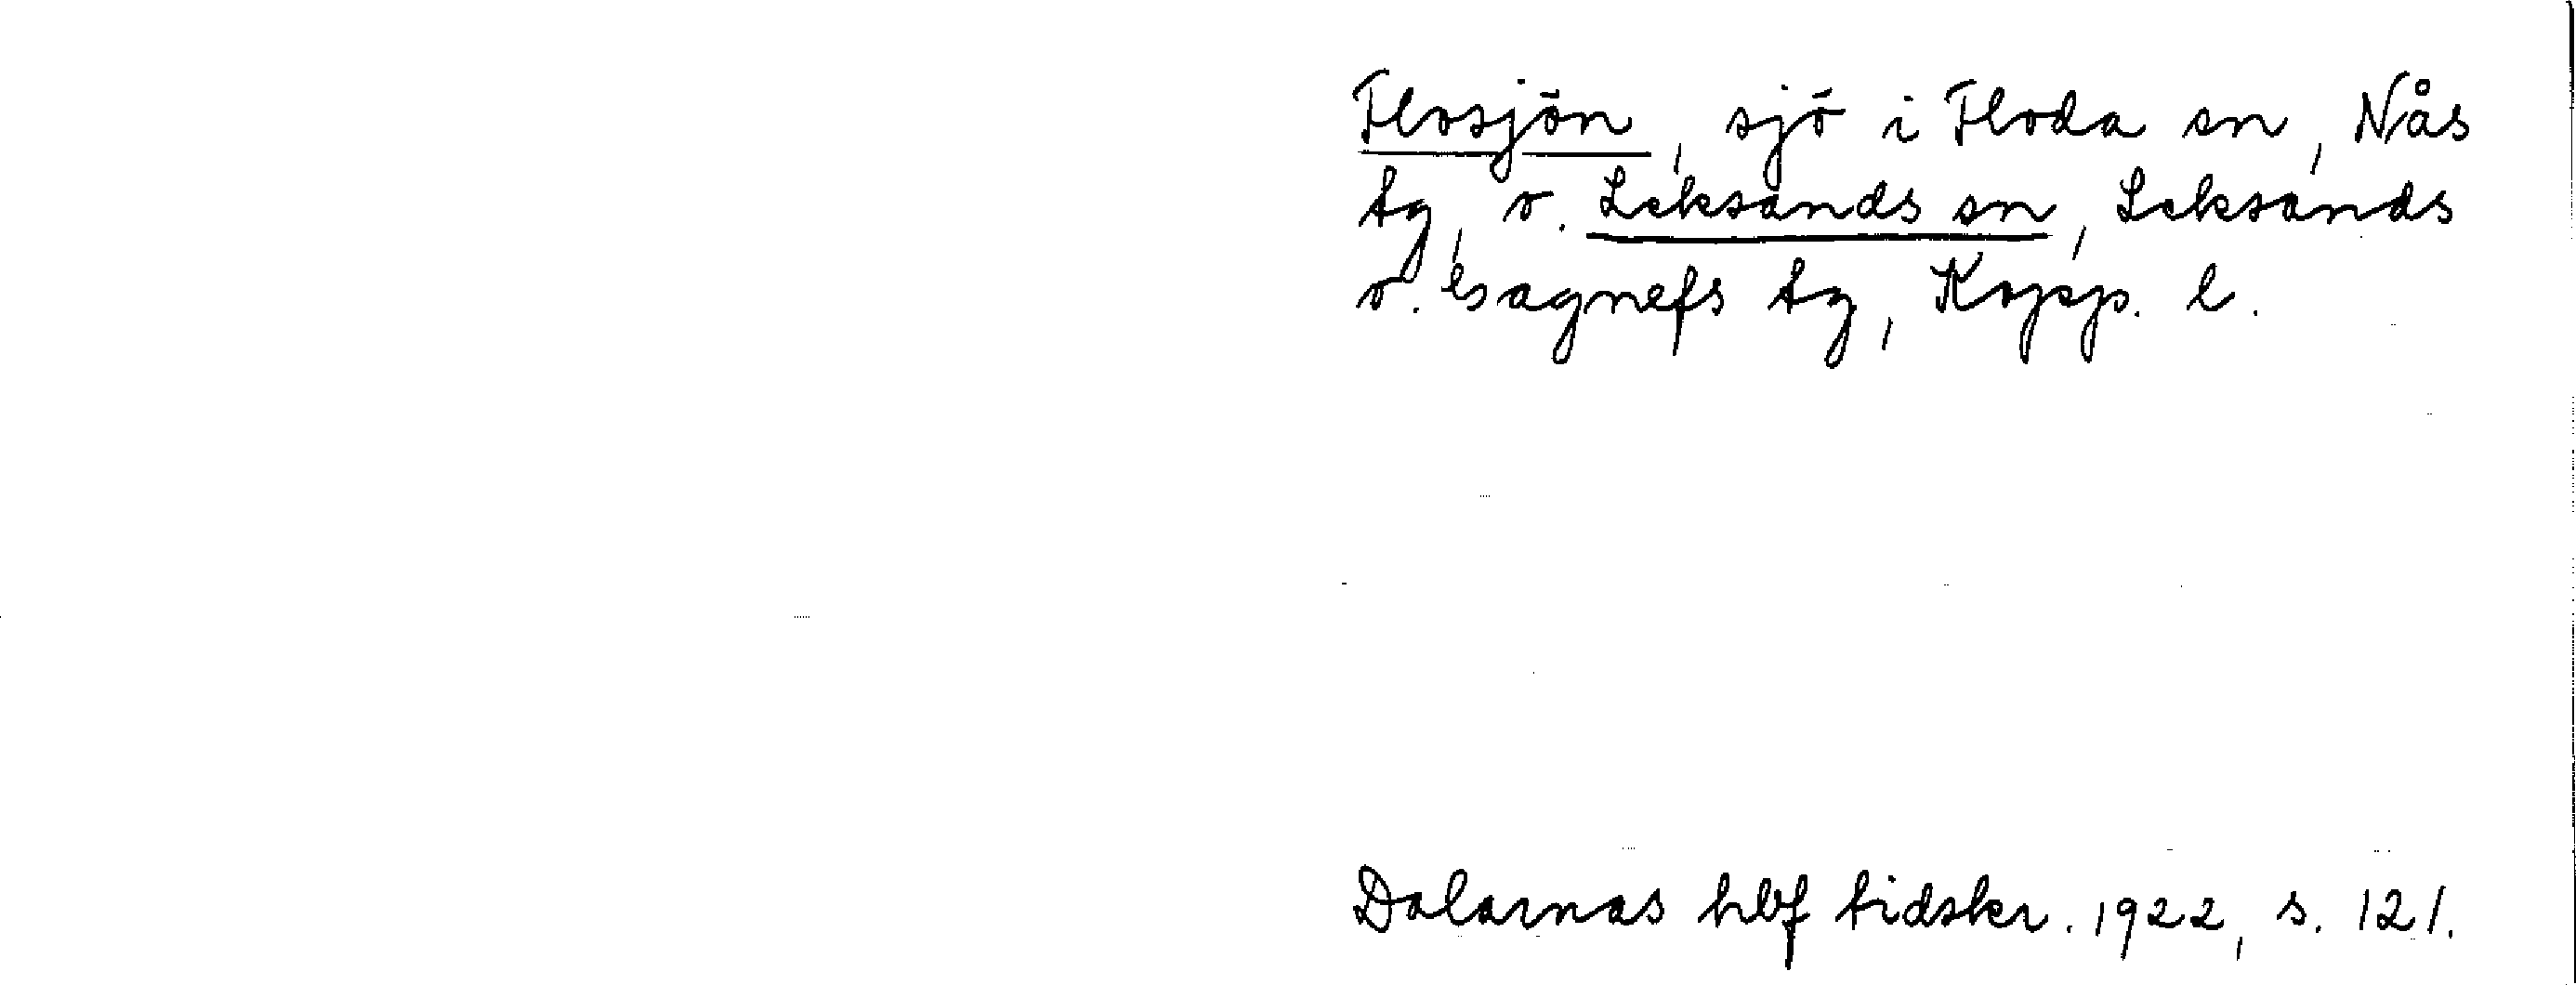 Flosjön, sjö i Floda sn, Nås
tg, o. Leksands sn, Leksands
o. Gagnefs tg, Kopp. l.
Dalarnas hbf tidskr. 1922, s. 121.